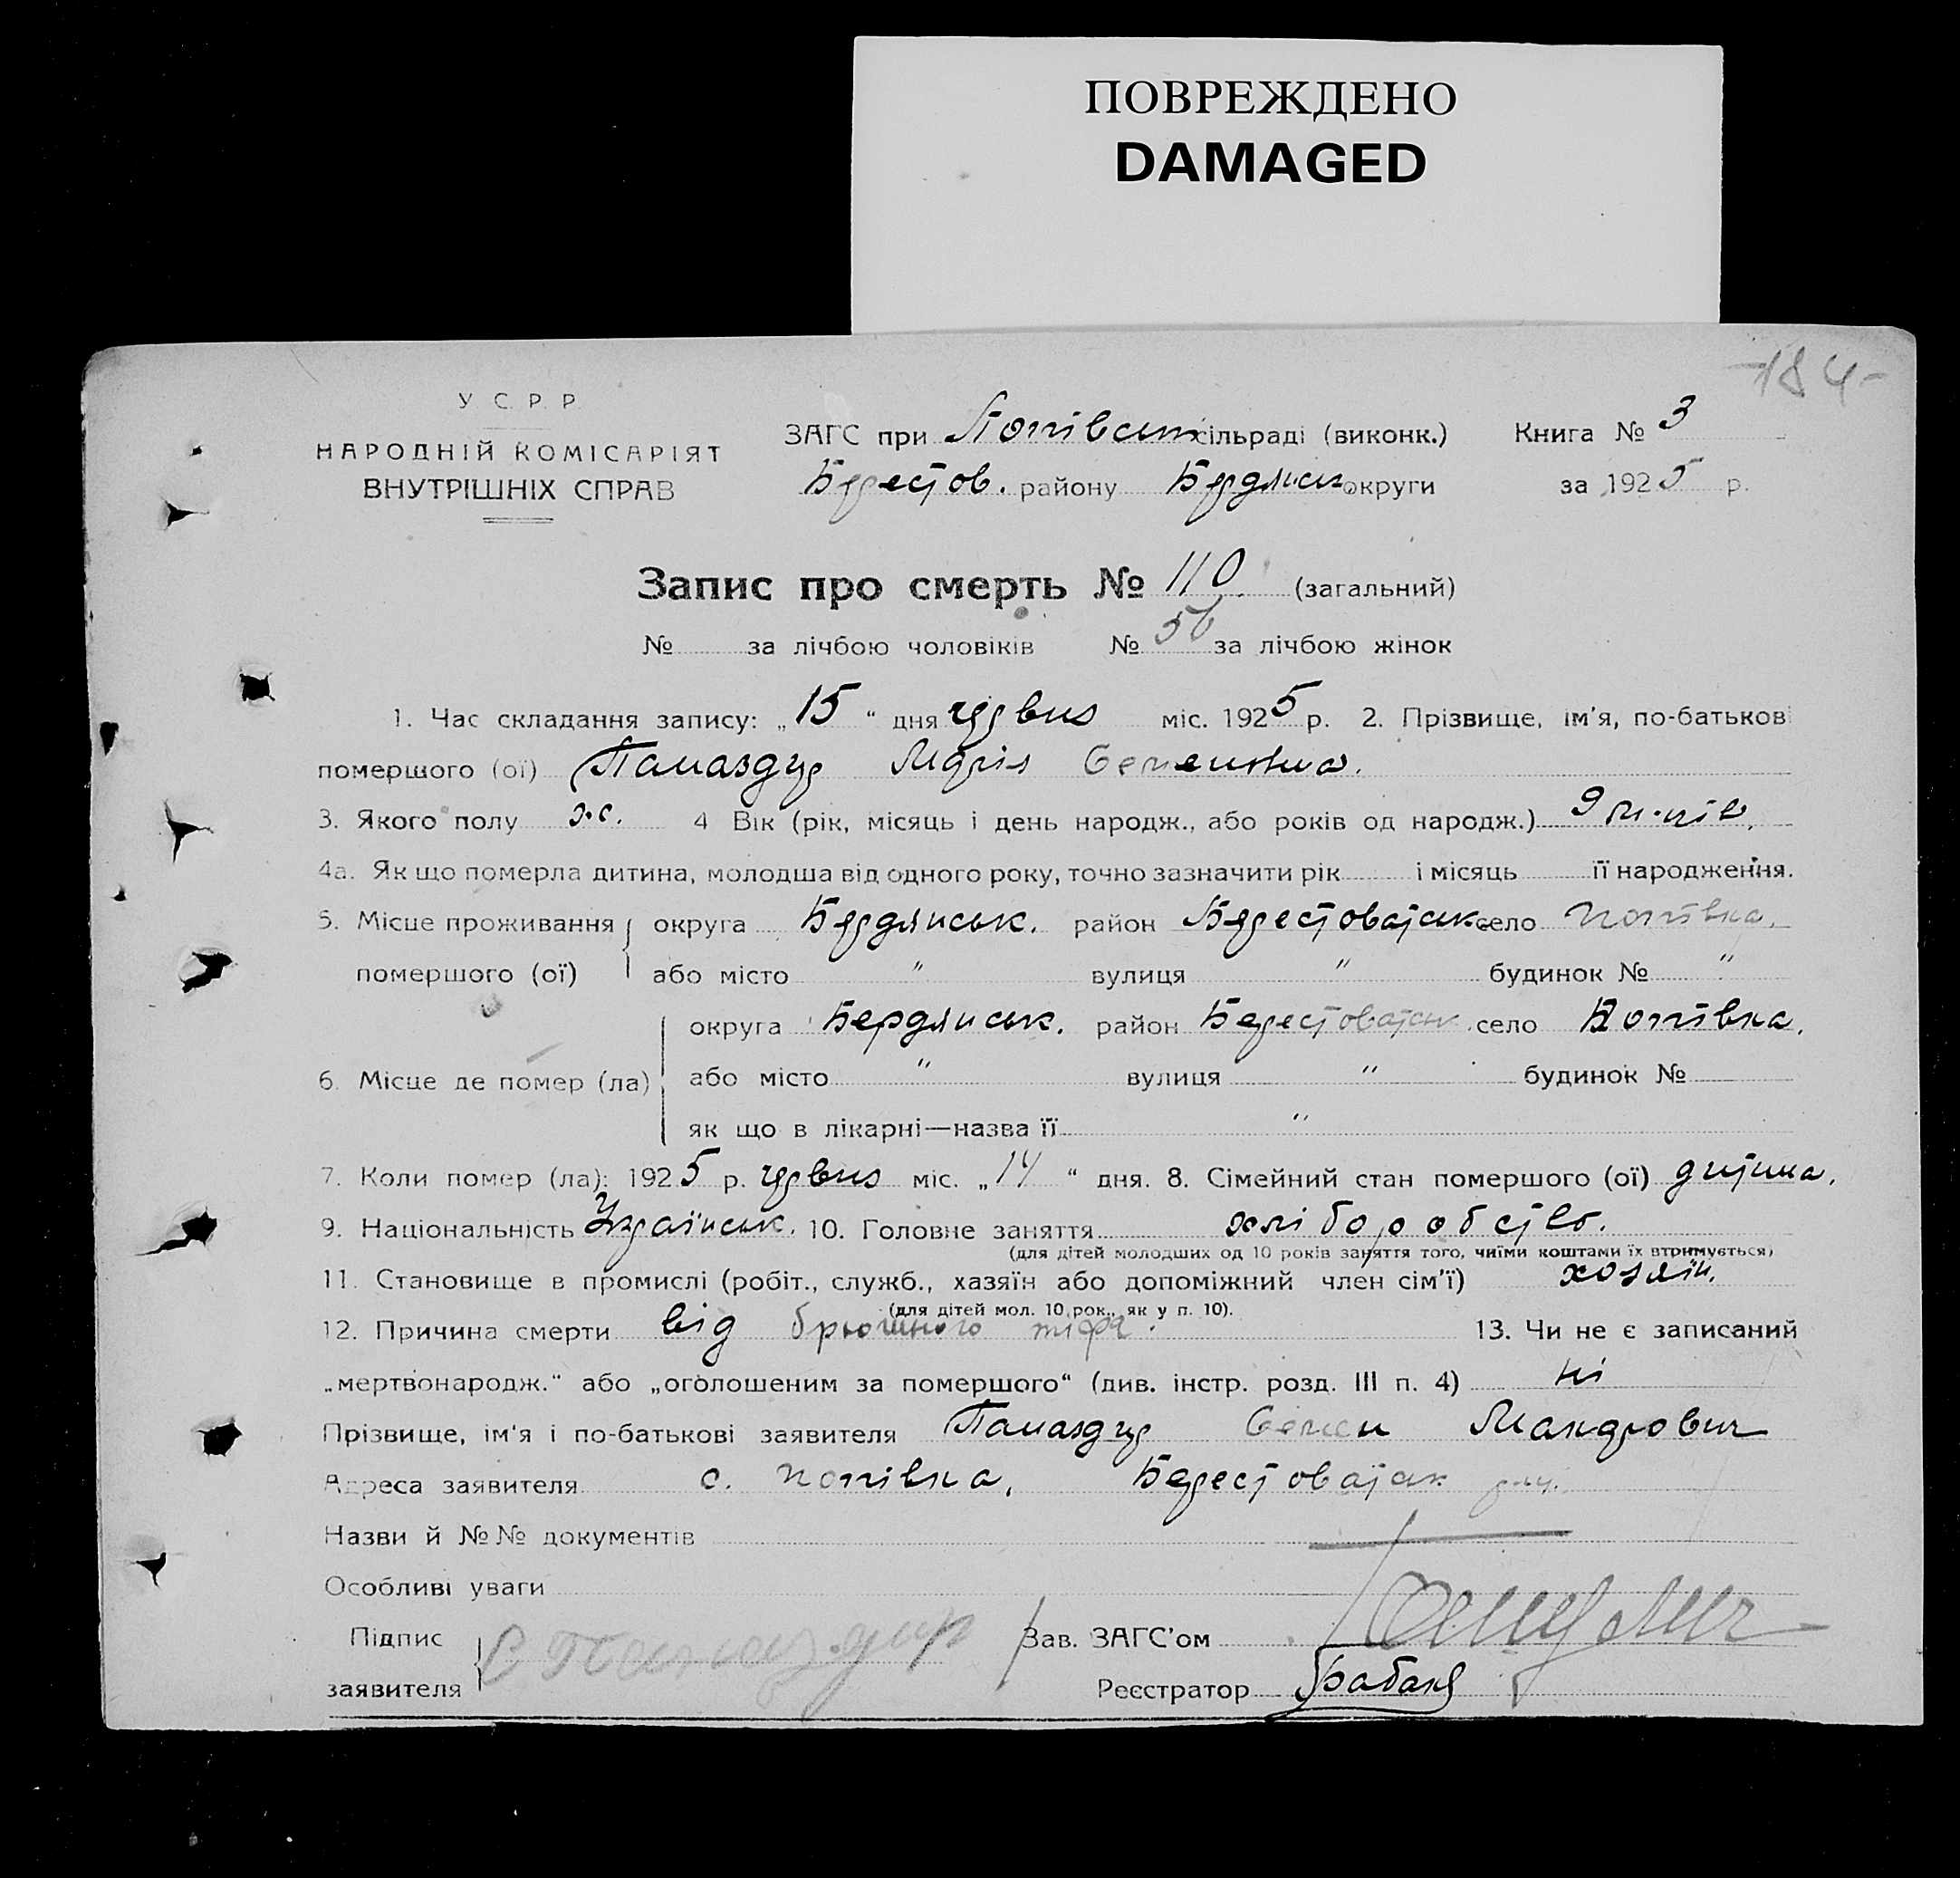 ПОВРЕЖДЕНО
DAMAGED
184
У С Р Р
НАРОДНІЙ КОМІСАРІЯТ
ВНУТРІШНІХ СПРАВ
ЗАГС при Попівськ сільраді (виконк.) Книга № 3
Берестов. району Бердянськ округи за 1925 р.
Запис про смерть № 110. (загальний)
№ за лічбою чоловіків № 56 за лічбою жінок
1. Час складання запису: „15“ дня червня міс. 1925 р. 2. Прізвище, ім'я, по-батькові
помершого (ої) Памаздир Марія Семеновна.
3. Якого полу ж. 4 Вік (рік, місяць і день народж., або років од народж.) 9
4а. Як що померла дитина, молодша від одного року, точно зазначити рік і місяць її народження.
5. Місце проживання округа Бердянськ. район Берестоватськ село Попівка.
помершого (ої) або місто " вулиця " будинок № "
округа Бердянськ. район Берестоватськ. село Попівка.
6. Місце де помер (ла) або місто " вулиця " будинок №
як що в лікарні—назва її "
7. Коли помер (ла): 1925 р. червня міс. „14“ дня. 8. Сімейний стан помершого (ої) дитина.
9. Національність Українськ. 10. Головне заняття хліборобство.
(для дітей молодших од 10 років заняття того, чиїми коштами їх втримується)
11. Становище в промислі (робіт., служб., хазяїн або допоміжний член сім'ї) хозяїн.
(для дітей мол. 10 рок., як у п. 10).
12. Причина смерти від брюшного тіфа. 13. Чи не є записаний
„мертвонародж.“ або „оголошеним за помершого“ (див. інстр. розд. III п. 4) ні
Прізвище, ім'я і по-батькові заявителя Памаздир Семен
Адреса заявителя с. Попівка, Берестоватськ
Назви й №№ документів
Особливі уваги
Підпис
заявителя С Памаздир
Зав. ЗАГС'ом
Реєстратор